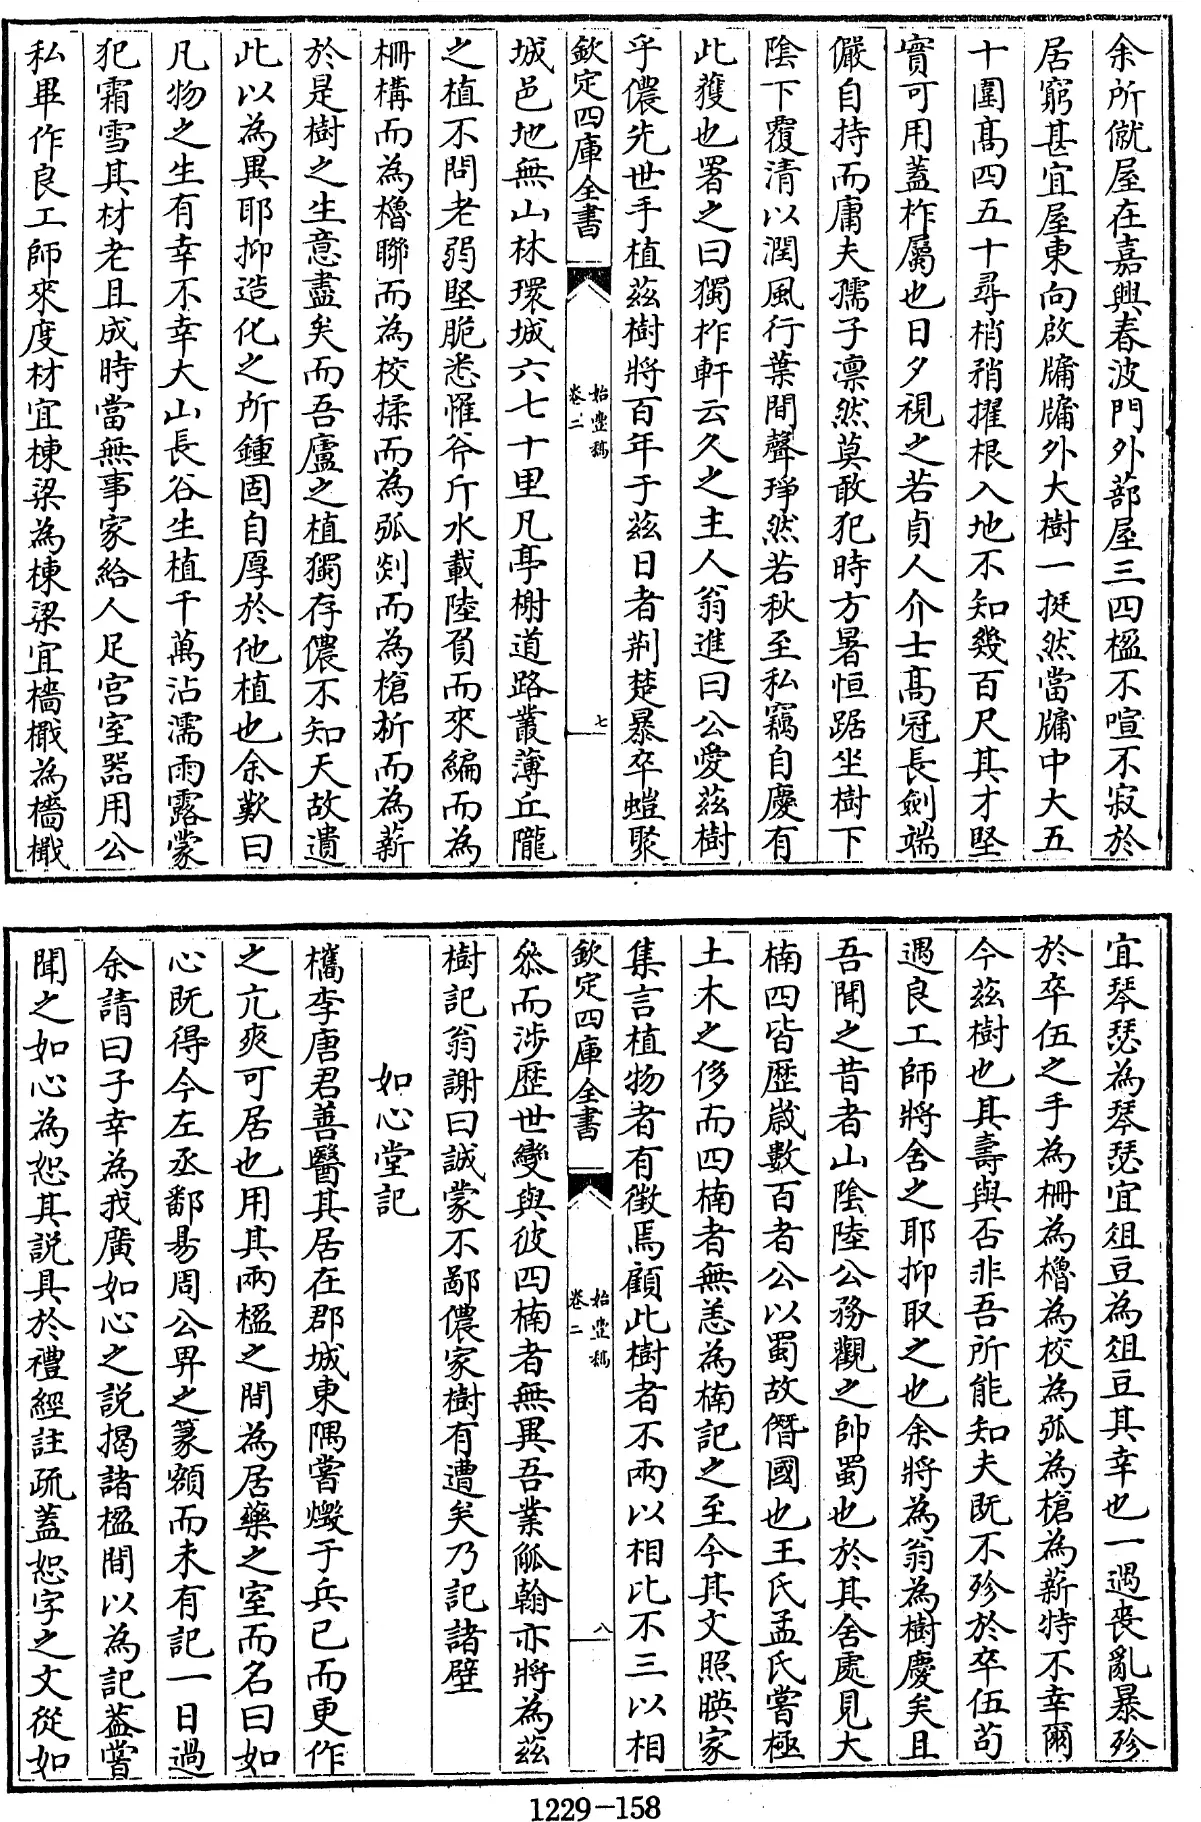 余所僦屋在嘉興春波門外蔀屋三四楹不喧不寂於
居窮甚宜屋東向啟牖牖外大樹一挺然當牖中大五
十圍髙四五十尋梢矟擢根入地不知幾百尺其才堅
實可用蓋柞屬也日夕視之若貞人介士髙冠長劍端
儼自持而庸夫孺子凛然莫敢犯時方暑恒踞坐樹下
陰下覆清以潤風行葉間聲琤然若秋至私竊自慶有
此獲也署之曰獨柞軒云久之主人翁進曰公愛茲樹
乎儂先世手植茲樹將百年于茲日者荆楚暴卒螘聚
欽定四庫全書
始豐稿
卷二
七
城邑地無山林環城六七十里凡亭榭道路叢薄丘隴
之植不問老弱堅脆悉罹斧斤水載陸負而來編而為
柵構而為櫓聯而為校揉而為弧剡而為槍析而為薪
於是樹之生意盡矣而吾廬之植獨存儂不知天故遺
此以為異耶抑造化之所鍾固自厚於他植也余歎曰
凡物之生有幸不幸大山長谷生植千萬沾濡雨露蒙
犯霜雪其材老且成時當無事家給人足宫室器用公
私畢作良工師來度材宜棟梁為棟梁宜檣檝為檣檝
宜琴瑟為琴瑟宜俎豆為俎豆其幸也一遇喪亂暴殄
於卒伍之手為柵為櫓為校為弧為槍為薪特不幸爾
今茲樹也其壽與否非吾所能知夫既不殄於卒伍茍
遇良工師將舍之耶抑取之也余將為翁為樹慶矣且
吾聞之昔者山陰陸公務觀之帥蜀也於其舍處見大
楠四皆歴嵗數百者公以蜀故僭國也王氏孟氏嘗極
土木之侈而四楠者無恙為楠記之至今其文照暎家
集言植物者有徴焉顧此樹者不兩以相比不三以相
欽定四庫全書
始豐稿
卷二
八
叅而涉歴世變與彼四楠者無異吾業觚翰亦將為茲
樹記翁謝曰誠蒙不鄙儂家樹有遭矣乃記諸壁
如心堂記
檇李唐君善醫其居在郡城東隅嘗燬于兵已而更作
之亢爽可居也用其兩楹之間為居藥之室而名曰如
心既得今左丞鄱昜周公畀之篆額而未有記一日過
余請曰子幸為我廣如心之說揭諸楹間以為記葢嘗
聞之如心為恕其説具於禮經註疏蓋恕字之文從如
1229-158